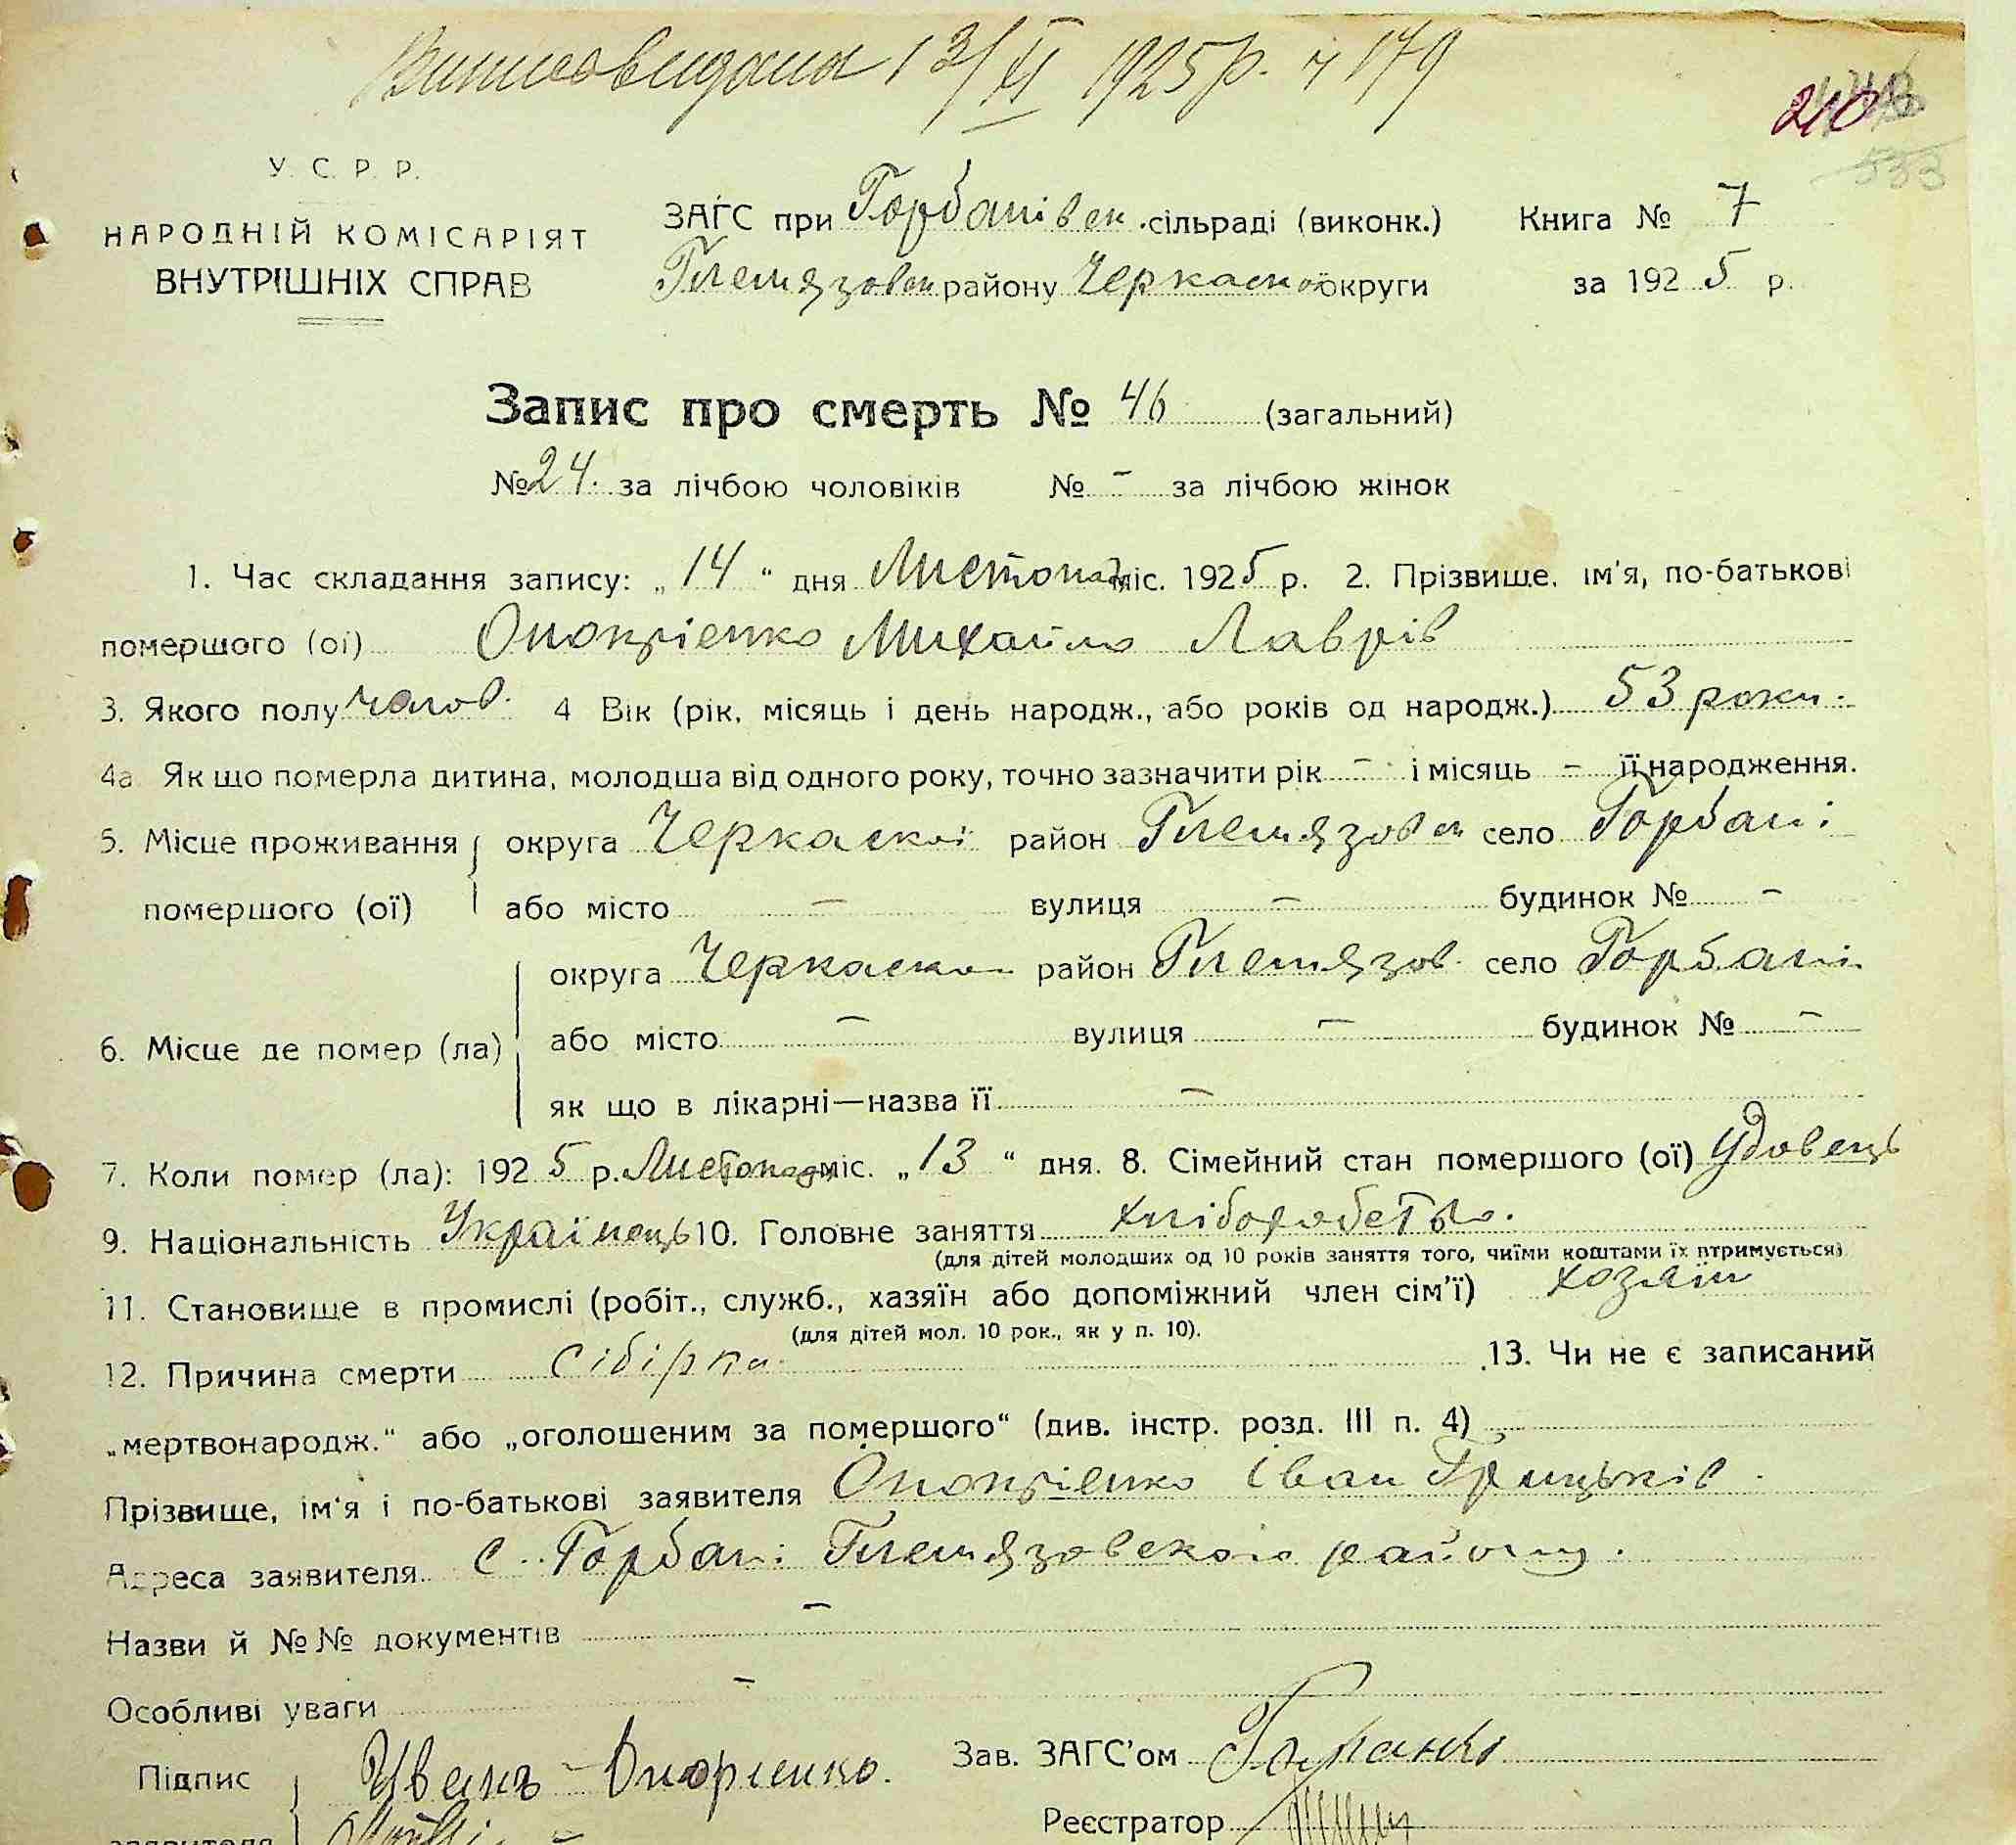 13/XI 1925 р. ч 179
210
533
У. С. Р. Р.
НАРОДНІЙ КОМІСАРІЯТ
ВНУТРІШНІХ СПРАВ
ЗАГС при Горбанівск. сільраді (виконк.) Книга № 7
Гнемязовск району Черкаской округи за 1925 р.
Запис про смерть № 46 (загальний)
№ 24. за лічбою чоловіків № – за лічбою жінок
1. Час складання запису: „14“ дня Листопад міс. 1925 р. 2. Прізвище, ім'я, по-батькові
помершого (ої) Онопрієнко Михайло Лаврів
3. Якого полу чолов. 4 Вік (рік, місяць і день народж., або років од народж.) 53 роки.
4а Як що померла дитина, молодша від одного року, точно зазначити рік – і місяць – її народження.
5. Місце проживання округа Черкаскої район Гнемязовск село Горбані
помершого (ої) або місто – вулиця – будинок № –
округа Черкаской район Гнемязов. село Горбані
6. Місце де помер (ла) або місто – вулиця – будинок № –
як що в лікарні—назва її –
7. Коли помер (ла): 1925 р. Листопад міс. „13“ дня. 8. Сімейний стан помершого (ої) Удовець
9. Національність Українець 10. Головне заняття хліборобство.
(для дітей молодших од 10 років заняття того, чиїми коштами їх втримується)
11. Становище в промислі (робіт., служб., хазяїн або допоміжний член сім'ї) хозяїн
(для дітей мол. 10 рок., як у п. 10).
12. Причина смерти сібірка. 13. Чи не є записаний
„мертвонародж.“ або „оголошеним за помершого“ (див. інстр. розд. III п. 4)
Прізвище, ім'я і по-батькові заявителя Онопрієнко Іван Грицьків.
Адреса заявителя с. Горбані Гнемязовского району.
Назви й №№ документів –
Особливі уваги –
Підпис Иванъ Оноприенко. Зав. ЗАГС'ом
заявителя Реєстратор